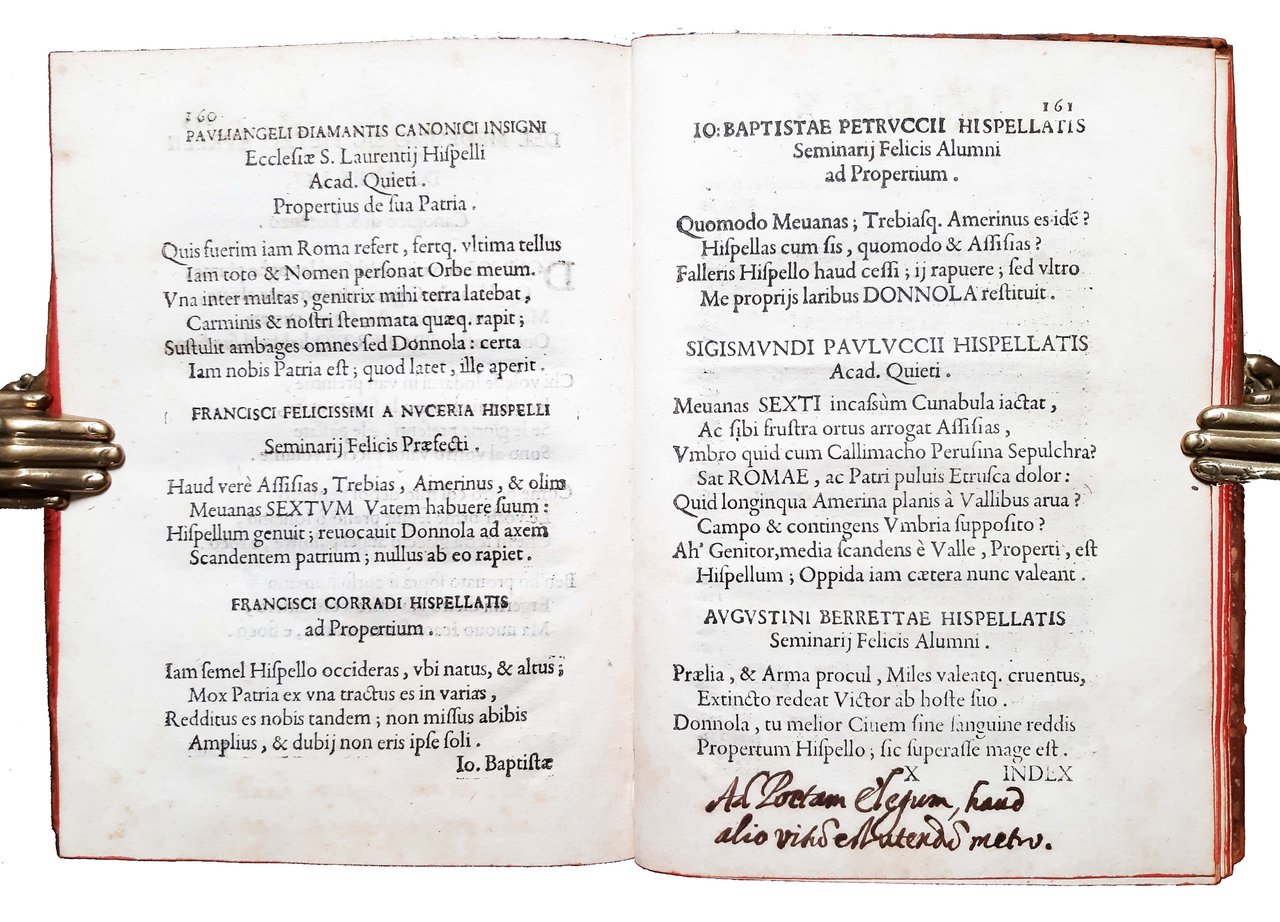 160
PAVLIANGELI DIAMANTIS CANONICI INSIGNI
Ecclesiæ S. Laurentij Hiſpelli
Acad. Quieti.
Propertius de ſua Patria.
Quis fuerim iam Roma refert, fertq. vltima tellus
Iam toto & Nomen perſonat Orbe meum.
Vna inter multas, genitrix mihi terra latebat,
Carminis & noſtri ſtemmata quæq. rapit;
Suſtulit ambages omnes ſed Donnola: certa
Iam nobis Patria eſt; quod latet, ille aperit.
FRANCISCI FELICISSIMI A NVCERIA HISPELLI
Seminarij Felicis Præfecti.
Haud verè Aſſiſias, Trebias, Amerinus, & olim
Meuanas SEXTVM Vatem habuere ſuum:
Hiſpellum genuit; reuocauit Donnola ad axem
Scandentem patrium; nullus ab eo rapiet.
FRANCISCI CORRADI HISPELLATIS
ad Propertium.
Iam ſemel Hiſpello occideras, vbi natus, & altus;
Mox Patria ex vna tractus es in varias,
Redditus es nobis tandem; non miſſus abibis
Amplius, & dubij non eris ipſe ſoli.
Io. Baptiſtæ
161
IO: BAPTISTAE PETRVCCII HISPELLATIS
Seminarij Felicis Alumni
ad Propertium.
Quomodo Meuanas; Trebiaſq. Amerinus es idē?
Hiſpellas cum ſis, quomodo & Aſſiſias?
Falleris Hiſpello haud ceſſi; ij rapuere; ſed vltro
Me proprijs laribus DONNOLA reſtituit.
SIGISMVNDI PAVLVCCII HISPELLATIS
Acad. Quieti.
Meuanas SEXTI incaſſùm Cunabula iactat,
Ac ſibi fruſtra ortus arrogat Aſſiſias,
Vmbro quid cum Callimacho Peruſina Sepulchra?
Sat ROMAE, ac Patri puluis Etruſca dolor:
Quid longinqua Amerina planis à Vallibus arua?
Campo & contingens Vmbria ſuppoſito?
Ah' Genitor, media ſcandens è Valle, Properti, eſt
Hiſpellum; Oppida iam cætera nunc valeant.
AVGVSTINI BERRETTAE HISPELLATIS
Seminarij Felicis Alumni.
Prælia, & Arma procul, Miles valeatq. cruentus,
Extincto redeat Victor ab hoſte ſuo.
Donnola, tu melior Ciuem ſine ſanguine reddis
Propertum Hiſpello; ſic ſuperaſſe mage eſt.
X INDEX
Ad Poetam Elegum, haud
alio viſū eſt utendū metro.